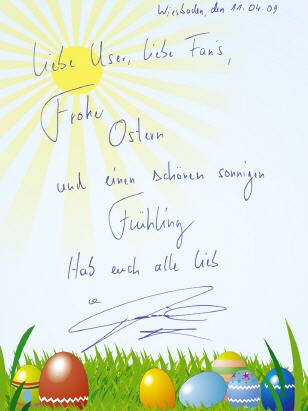 Wiesbaden, den 11.04.09
Liebe User, liebe Fan's,
Frohe
Ostern
und einen schönen sonnigen
Frühling
Hab euch alle lieb